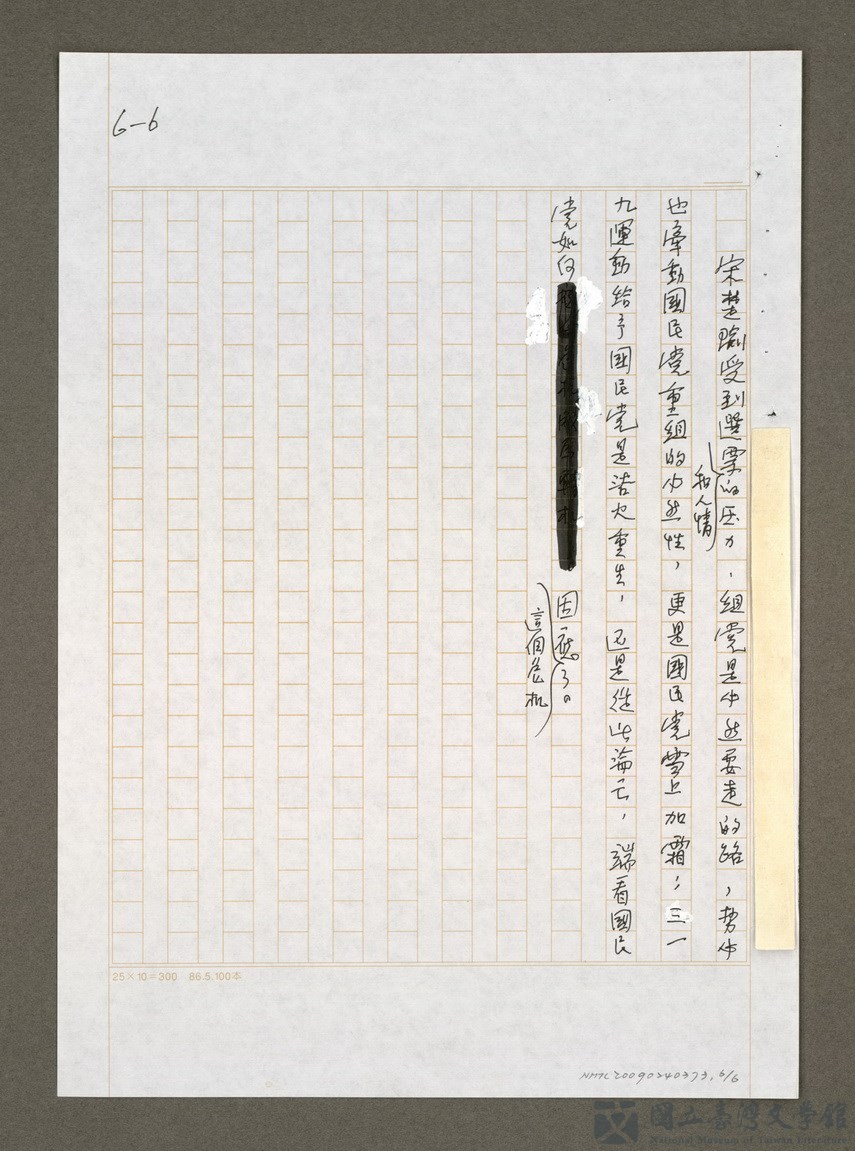 6-6
宋楚瑜受到選票和人情的压力，組党是必然要走的路，势必
也牽動國民党重組的必然性，更是國民党雪上加霜；三一
九運動給予國民党是浴火重生，还是從此淪亡，端看國民
党如何
因應這個危机了。
25×10=300 86.5.100本
NMTL20090240373, 6/6
國立臺灣文學館
National Museum of Taiwan Literature